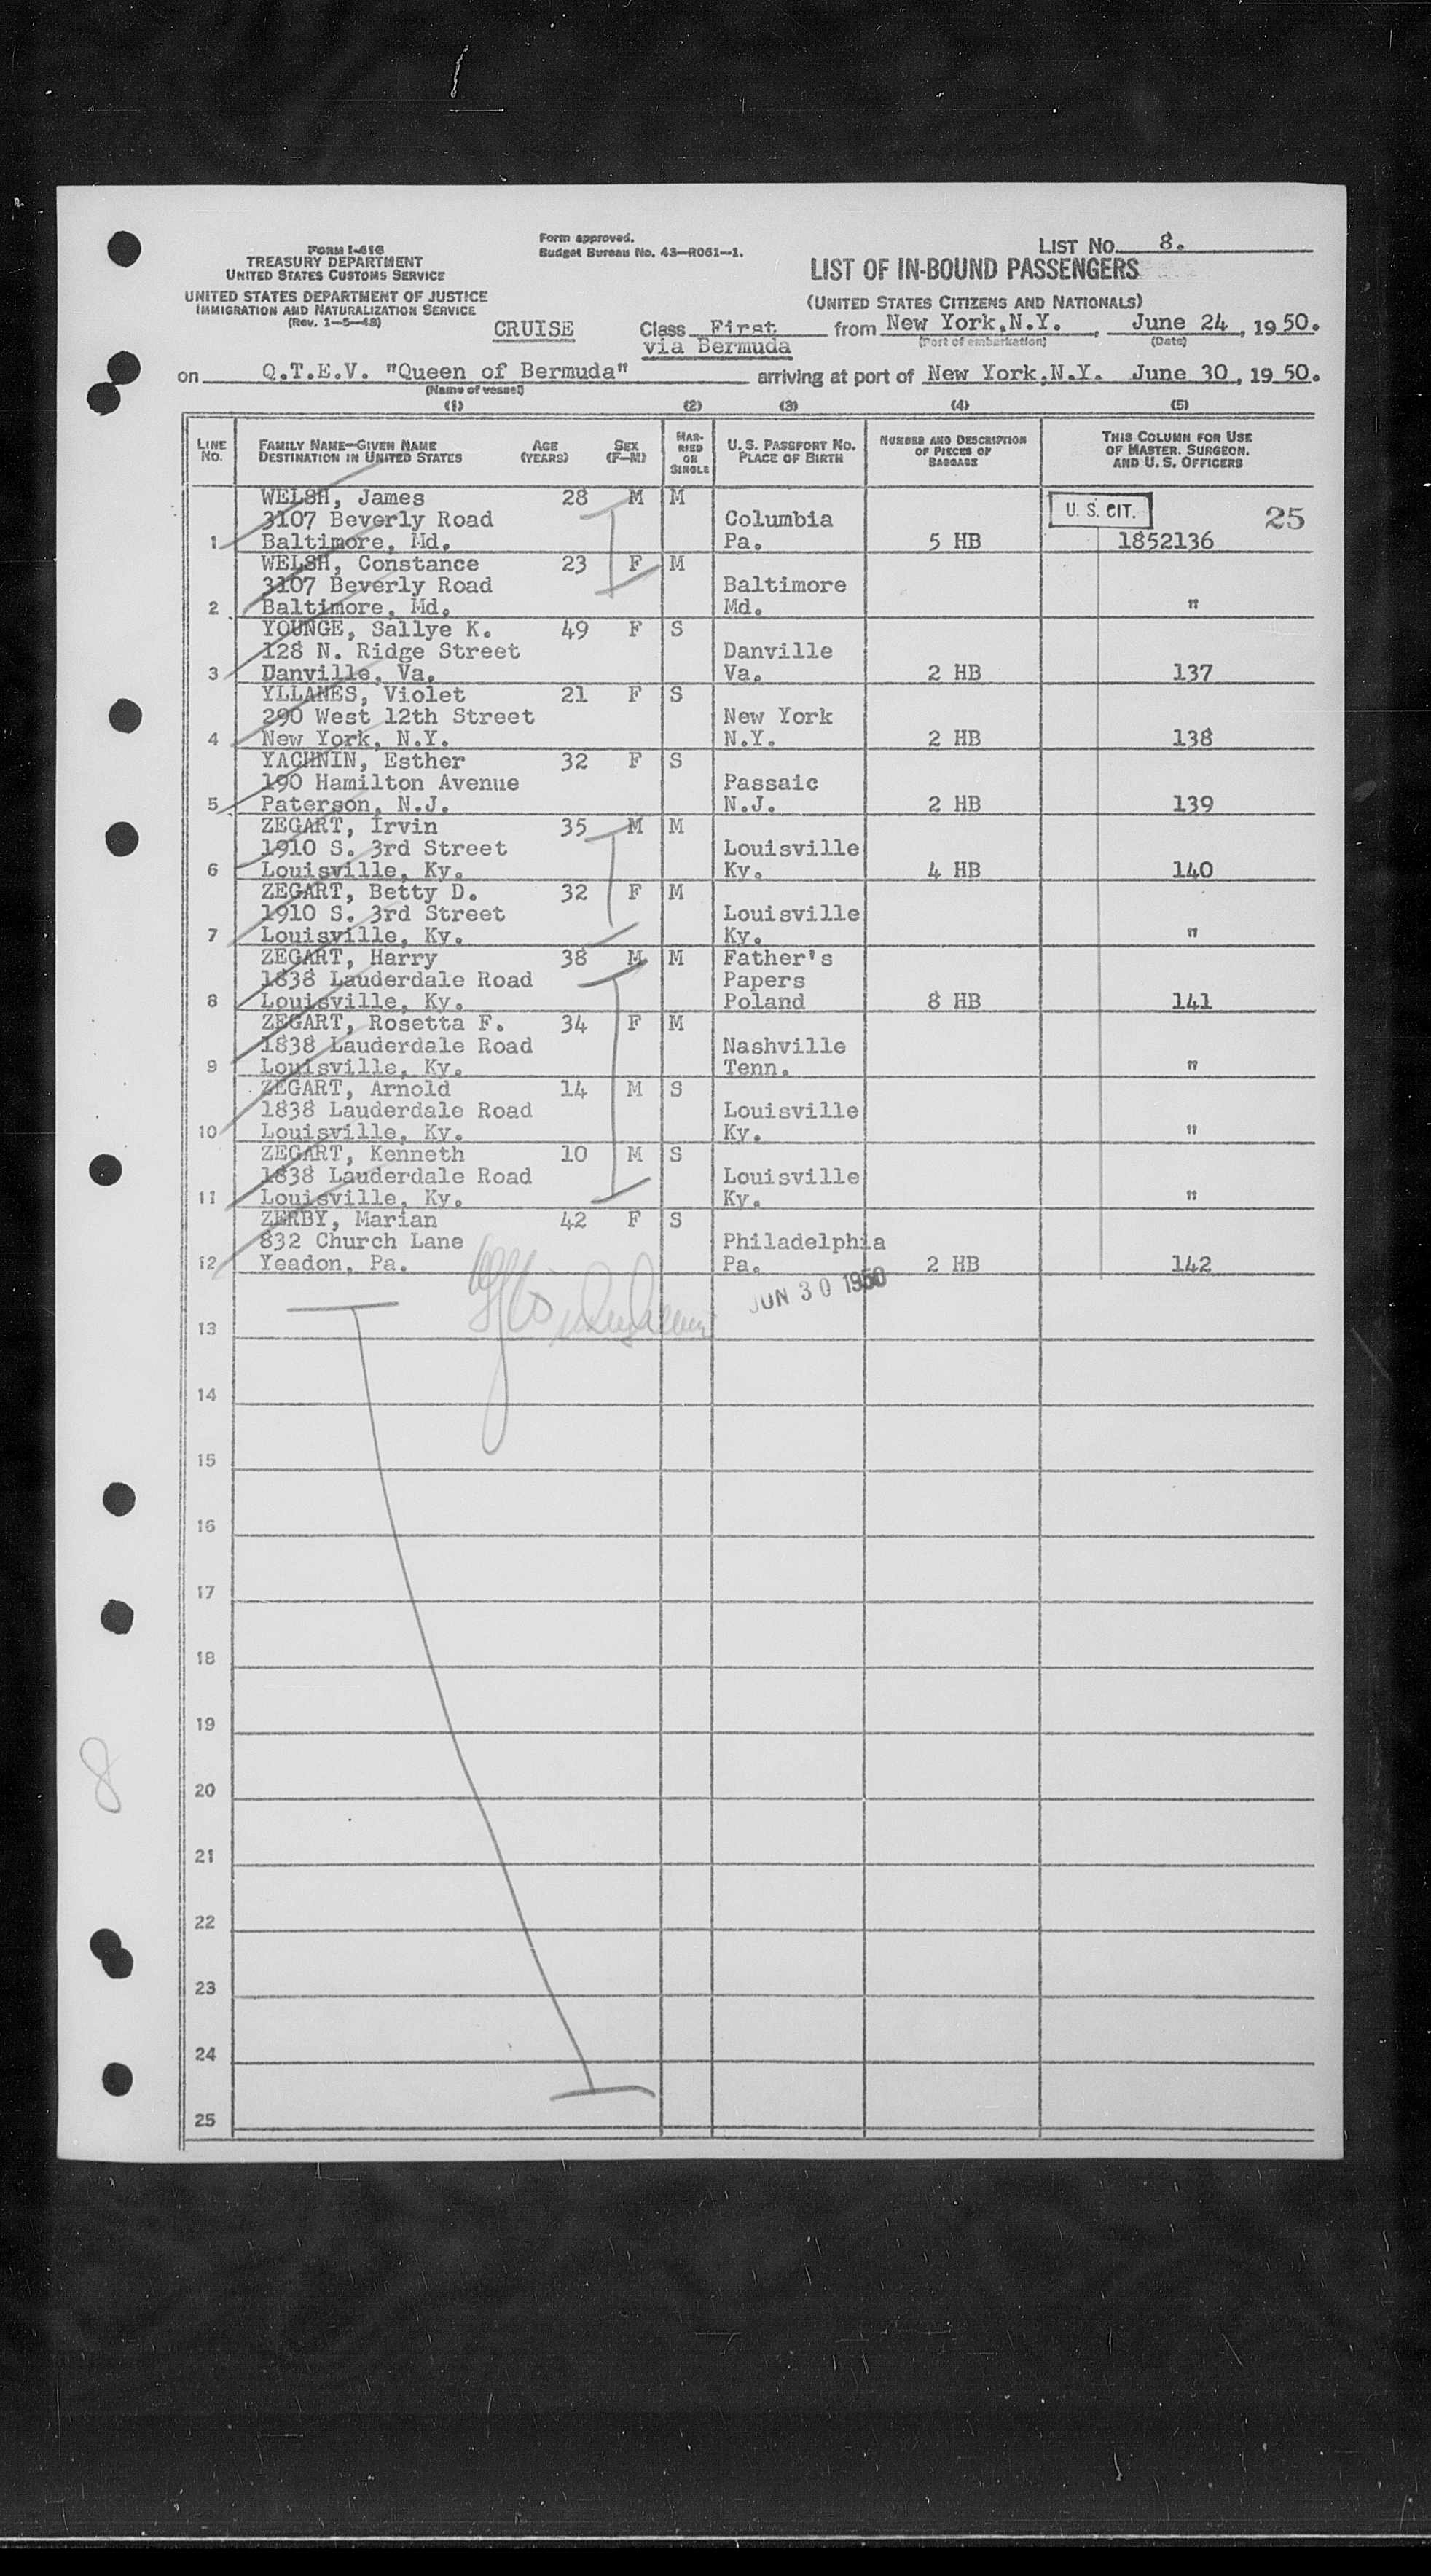 FORM I-416
TREASURY DEPARTMENT
UNITED STATES CUSTOMS SERVICE
UNITED STATES DEPARTMENT OF JUSTICE
IMMIGRATION AND NATURALIZATION SERVICE
(Rev. 1-5-48)
Form approved.
Budget Bureau No. 43-R061-1.
LIST NO. 8.
LIST OF IN-BOUND PASSENGERS
(UNITED STATES CITIZENS AND NATIONALS)
CRUISE Class First from New York, N.Y., June 24, 1950.
via Bermuda (Port of embarkation) (Date)
on Q.T.E.V. "Queen of Bermuda" arriving at port of New York, N.Y. June 30, 1950.
(Name of vessel)
(1) (2) (3) (4) (5)
LINE NO. FAMILY NAME—GIVEN NAME DESTINATION IN UNITED STATES AGE (YEARS) SEX (F-M) MARRIED OR SINGLE U.S. PASSPORT NO. PLACE OF BIRTH NUMBER AND DESCRIPTION OF PIECES OF BAGGAGE THIS COLUMN FOR USE OF MASTER, SURGEON, AND U.S. OFFICERS
WELSH, James 28 M M U. S. CIT. 25
3107 Beverly Road Columbia
1 Baltimore, Md. Pa. 5 HB 1852136
WELSH, Constance 23 F M
3107 Beverly Road Baltimore
2 Baltimore, Md. Md. "
YOUNGE, Sallye K. 49 F S
128 N. Ridge Street Danville
3 Danville, Va. Va. 2 HB 137
YLLANES, Violet 21 F S
290 West 12th Street New York
4 New York, N.Y. N.Y. 2 HB 138
YACHNIN, Esther 32 F S
190 Hamilton Avenue Passaic
5 Paterson, N.J. N.J. 2 HB 139
ZEGART, Irvin 35 M M
1910 S. 3rd Street Louisville
6 Louisville, Ky. Ky. 4 HB 140
ZEGART, Betty D. 32 F M
1910 S. 3rd Street Louisville
7 Louisville, Ky. Ky. "
ZEGART, Harry 38 M M Father's
1838 Lauderdale Road Papers
8 Louisville, Ky. Poland 8 HB 141
ZEGART, Rosetta F. 34 F M
1838 Lauderdale Road Nashville
9 Louisville, Ky. Tenn. "
ZEGART, Arnold 14 M S
1838 Lauderdale Road Louisville
10 Louisville, Ky. Ky. "
ZEGART, Kenneth 10 M S
1838 Lauderdale Road Louisville
11 Louisville, Ky. Ky. "
ZERBY, Marian 42 F S
832 Church Lane Philadelphia
12 Yeadon, Pa. Pa. 2 HB 142
JUN 30 1950
13
14
15
16
17
18
19
8
20
21
22
23
24
25